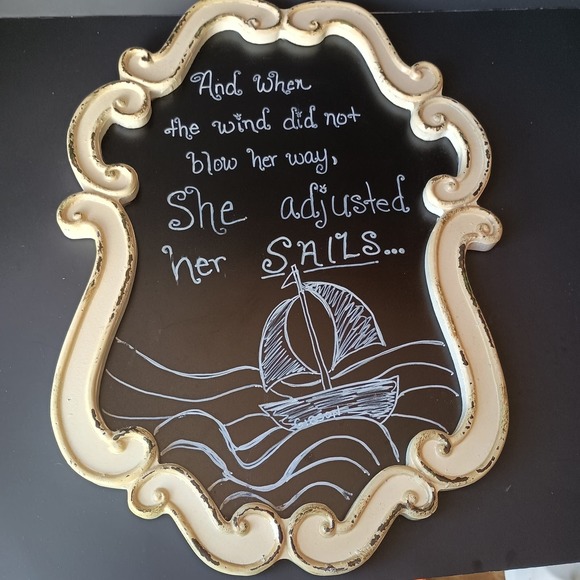 And when
the wind did not
blow her way,
She adjusted
her SAILS...